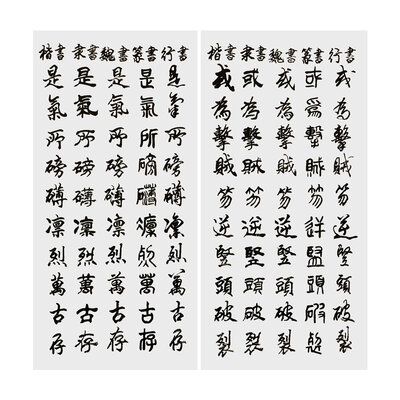 楷書 隶書 魏書 篆書 行書
是 是 是 是 是
氣 氣 氣 氣 氣
所 所 所 所 所
磅 磅 磅 磅 磅
礴 礴 礴 礴 礴
凛 凛 凛 凛 凛
烈 烈 烈 烈 烈
萬 萬 萬 萬 萬
古 古 古 古 古
存 存 存 存 存
楷書 隶書 魏書 篆書 行書
或 或 或 或 或
為 為 為 為 為
擊 擊 擊 擊 擊
賊 賊 賊 賊 賊
笏 笏 笏 笏 笏
逆 逆 逆 逆 逆
竪 竪 竪 竪 竪
頭 頭 頭 頭 頭
破 破 破 破 破
裂 裂 裂 裂 裂